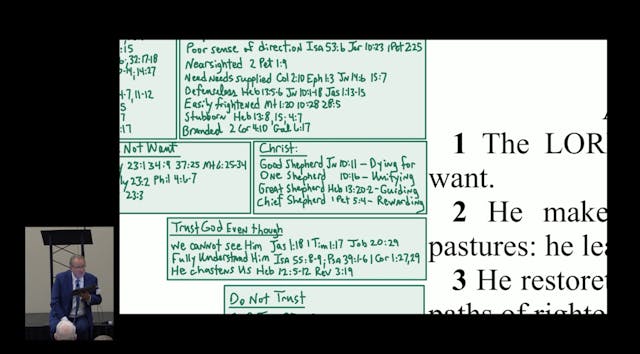 :15
; 32:17-18
-4; 14:27
4:7, 11-12
5
:17
Poor sense of direction Isa 53:6 Jer 10:23 1 Pet 2:25
Nearsighted 2 Pet 1:9
Need needs supplied Col 2:10 Eph 1:3 Jn 14:6 15:7
Defenseless Heb 13:5-6 Jn 10:1-18 Jas 1:13-15
Easily frightened Mt 1:20 10:28 28:5
Stubborn Heb 13:8, 15; 4:7
Branded 2 Cor 4:10 Gal 6:17
Not Want
23:1 34:9 37:25 Mt 6:25-34
23:2 Phil 4:6-7
23:3
Christ:
Good Shepherd Jn 10:11 – Dying for
One Shepherd 10:16 – Unifying
Great Shepherd Heb 13:20-2 – Guiding
Chief Shepherd 1 Pet 5:4 – Rewarding
Trust God Even though
We cannot see Him Jas 1:18 1 Tim 1:17 Job 20:29
Fully Understand Him Isa 55:8-9; Psa 39:1-6 1 Cor 1:27,29
He chastens Us Heb 12:5-12 Rev 3:19
Do Not Trust
1 The LOR
want.
2 He make
pastures: he lea
3 He restoret
paths of righte